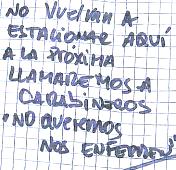 NO VUELVAN A
ESTACIONAR AQUÍ
A LA PRÓXIMA
LLAMAREMOS A
CARABINEROS
"NO QUEREMOS
NOS ENFERMEN"